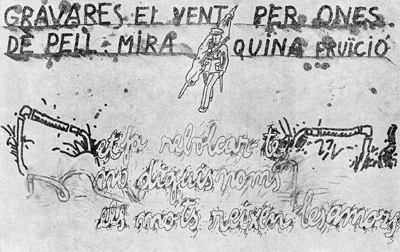 GRAVARES EL VENT PER ONES
DE PELL - MIRA QUINA FRUÏCIÓ
et fa rebolcar-te
no diguis noms
els mots neixen les amors